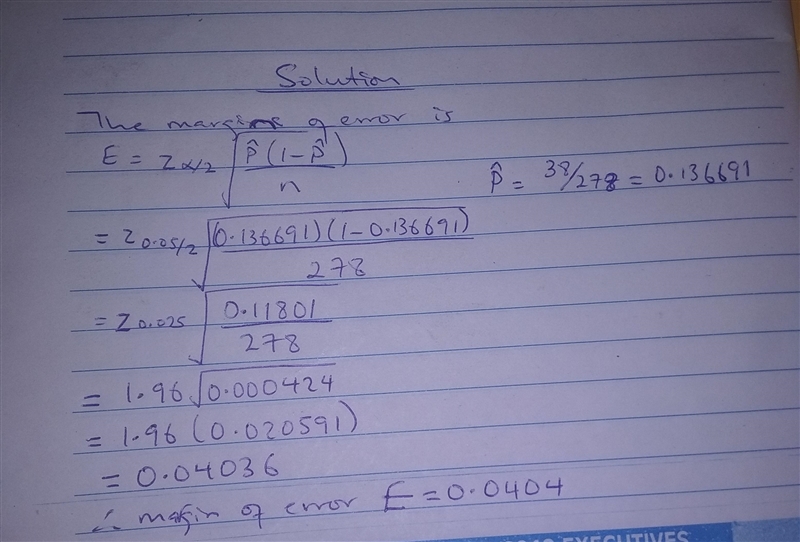 Solution
The margin of error is
E = Z α/2 √ p̂(1-p̂) / n
p̂ = 38/278 = 0.136691
= Z 0.05/2 √ (0.136691)(1-0.136691) / 278
= Z 0.025 √ 0.11801 / 278
= 1.96 √ 0.000424
= 1.96 (0.020591)
= 0.04036
∴ margin of error E = 0.0404
EXECUTIVES